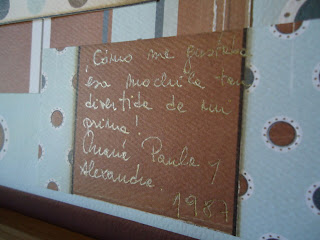 ¡Cómo me gustaba
esa mochila tan
divertida de mi
prima!
Paula y
Alexandra. 1987